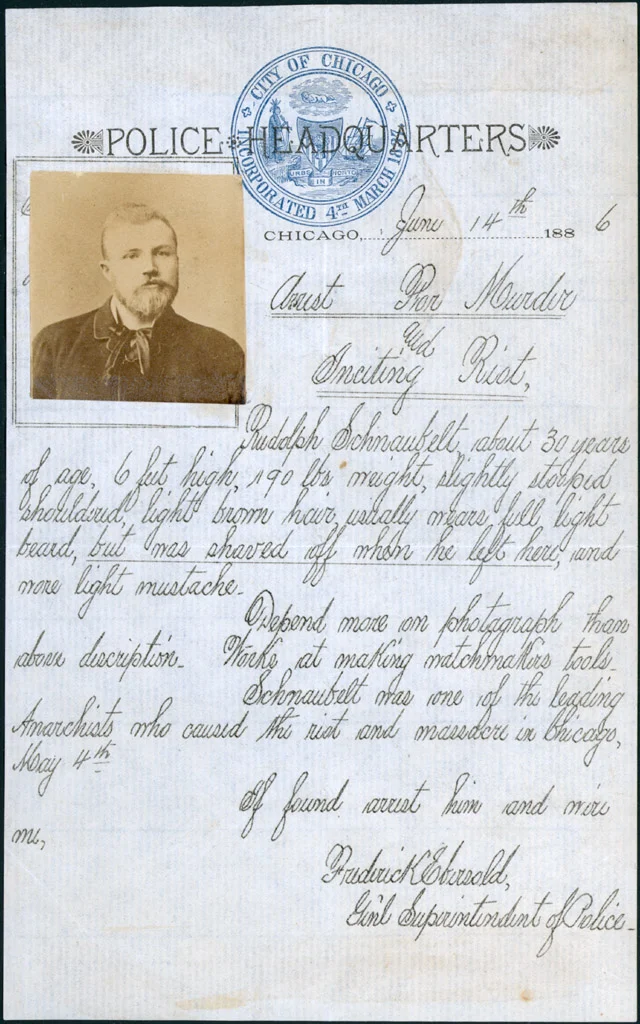 CITY OF CHICAGO
INCORPORATED 4TH MARCH 1837
URBS IN HORTO
POLICE HEADQUARTERS
CHICAGO, June 14th 1886
Arrest For Murder
and
Inciting Riot,
Rudolph Schnaubelt, about 30 years
of age, 6 feet high, 190 lbs weight, slightly stooped
shouldered, light brown hair, usually wears full light
beard, but was shaved off when he left here, and
wore light mustache.
Depend more on photagraph than
above discription. Works at making watchmakers tools.
Schnaubelt was one of the leading
Anarchists who caused the riot and massacre in Chicago,
May 4th
If found arrest him and wire
me,
Frederick Ebersold,
Gin'l Superintendent of Police.